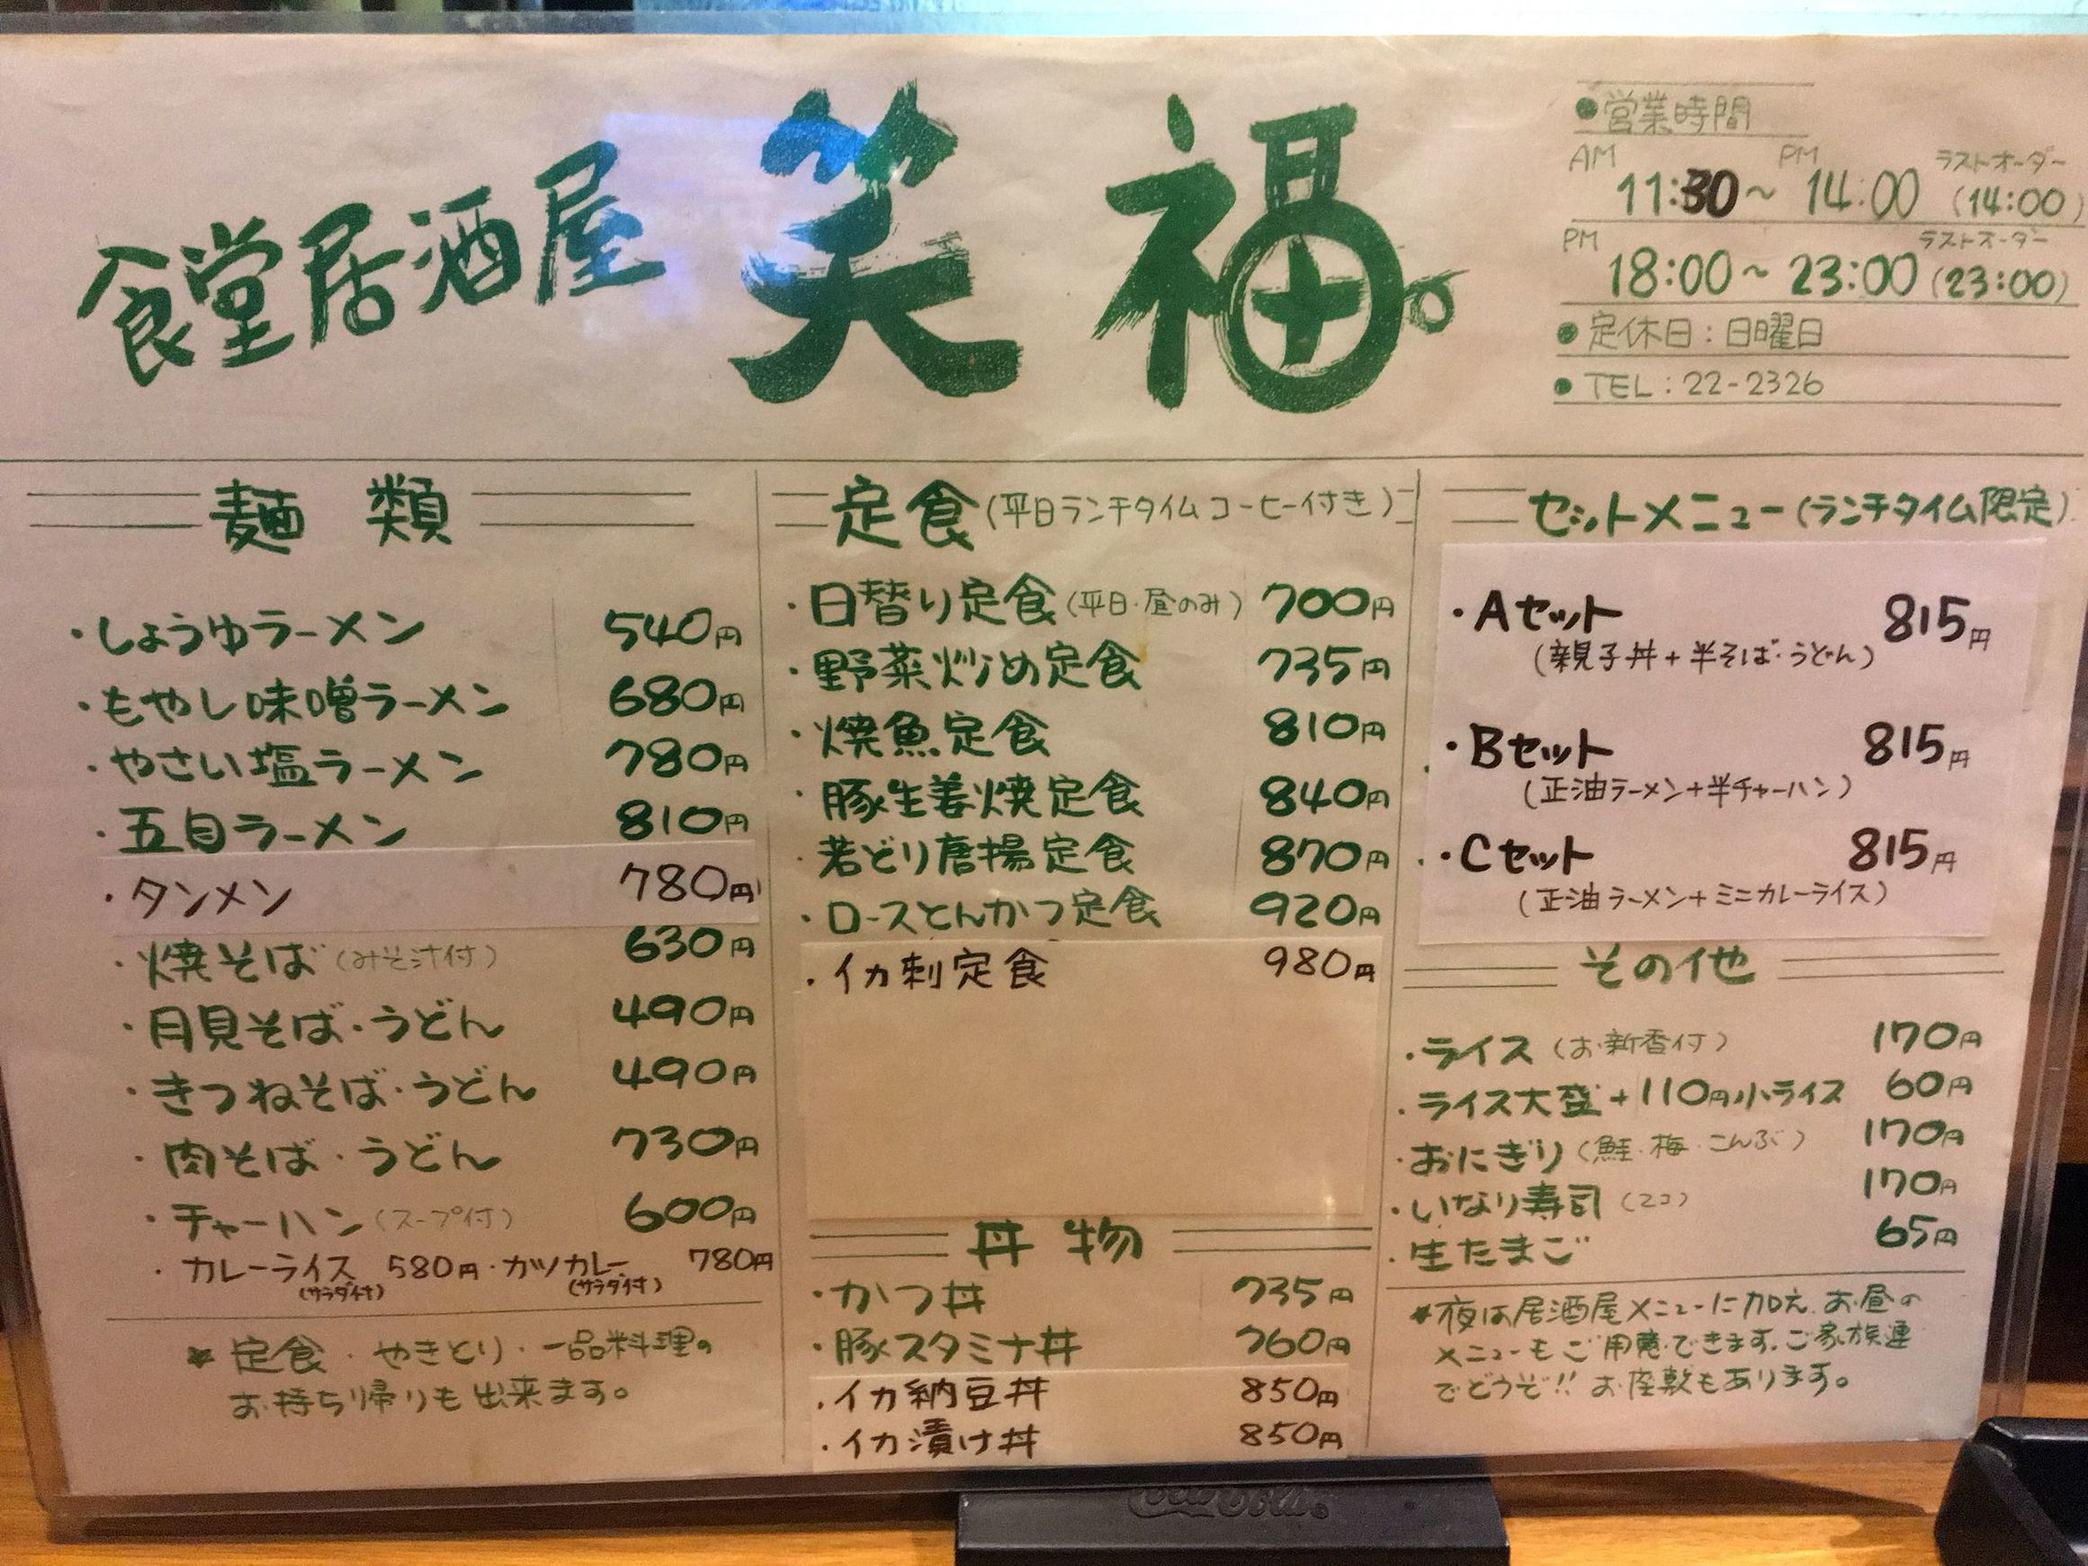 食堂居酒屋 笑福。
●営業時間
AM 11:30～ PM 14:00 ラストオーダー(14:00)
PM 18:00～23:00 ラストオーダー(23:00)
●定休日：日曜日
●TEL：22-2326
麺 類
・しょうゆラーメン 540円
・もやし味噌ラーメン 680円
・やさい塩ラーメン 780円
・五目ラーメン 810円
・タンメン 780円
・焼そば（みそ汁付） 630円
・月見そば・うどん 490円
・きつねそば・うどん 490円
・肉そば・うどん 730円
・チャーハン（スープ付） 600円
・カレーライス（サラダ付） 580円・カツカレー（サラダ付） 780円
＊定食・やきとり・一品料理の
お持ち帰りも出来ます。
定食（平日ランチタイムコーヒー付き）
・日替り定食（平日・昼のみ） 700円
・野菜炒め定食 735円
・焼魚定食 810円
・豚生姜焼定食 840円
・若どり唐揚定食 870円
・ロースとんかつ定食 920円
・イカ刺定食 980円
丼 物
・かつ丼 735円
・豚スタミナ丼 760円
・イカ納豆丼 850円
・イカ漬け丼 850円
セットメニュー（ランチタイム限定）
・Aセット 815円
（親子丼＋半そば・うどん）
・Bセット 815円
（正油ラーメン＋半チャーハン）
・Cセット 815円
（正油ラーメン＋ミニカレーライス）
その他
・ライス（お新香付） 170円
・ライス大盛＋110円小ライス 60円
・おにぎり（鮭・梅・こんぶ） 170円
・いなり寿司（2コ） 170円
・生たまご 65円
＊夜は居酒屋メニューに加え、お昼の
メニューもご用意できます。ご家族連
でどうぞ!! お座敷もあります。
Coca-Cola